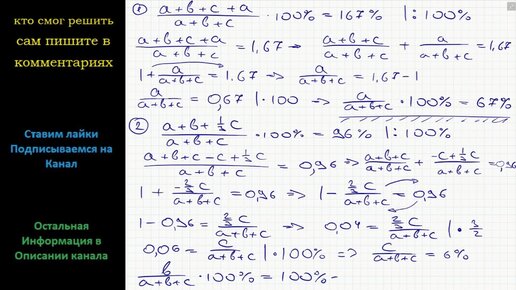 кто смог решить
сам пишите в
комментариях
Ставим лайки
Подписываемся на
Канал
Остальная
Информация в
Описании канала
① (a+b+c+a)/(a+b+c) · 100% = 167% |:100%
(a+b+c+a)/(a+b+c) = 1,67 → (a+b+c)/(a+b+c) + a/(a+b+c) = 1,67
1 + a/(a+b+c) = 1,67 => a/(a+b+c) = 1,67 - 1
a/(a+b+c) = 0,67 |·100 => a/(a+b+c) · 100% = 67%
② (a+b+⅓c)/(a+b+c) · 100% = 96% |:100%
(a+b+c-c+⅓c)/(a+b+c) = 0,96 => (a+b+c)/(a+b+c) + (-c+⅓c)/(a+b+c) = 0,96
1 + (-⅔c)/(a+b+c) = 0,96 => 1 - (⅔c)/(a+b+c) = 0,96
1 - 0,96 = (⅔c)/(a+b+c) => 0,04 = (⅔c)/(a+b+c) |· 3/2
0,06 = c/(a+b+c) |·100% => c/(a+b+c) = 6%
b/(a+b+c) · 100% = 100% -